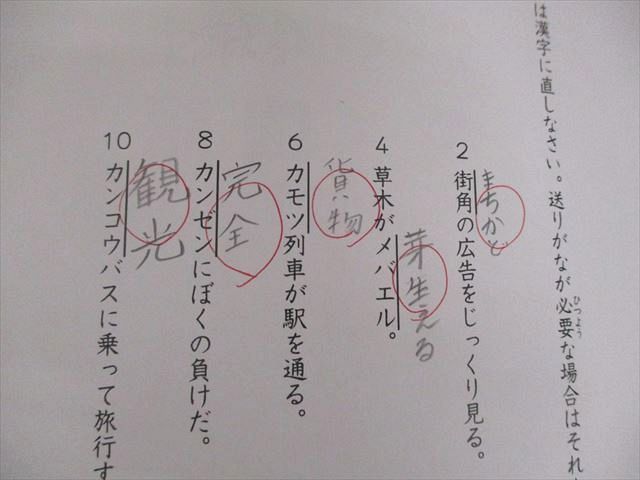 は漢字に直しなさい。送りがなが必要な場合はそれ
ひつよう
2 街角の広告をじっくり見る。
まちかど
4 草木がメバエル。
芽生える
6 カモツ列車が駅を通る。
貨物
8 カンゼンにぼくの負けだ。
完全
10 カンコウバスに乗って旅行す
観光